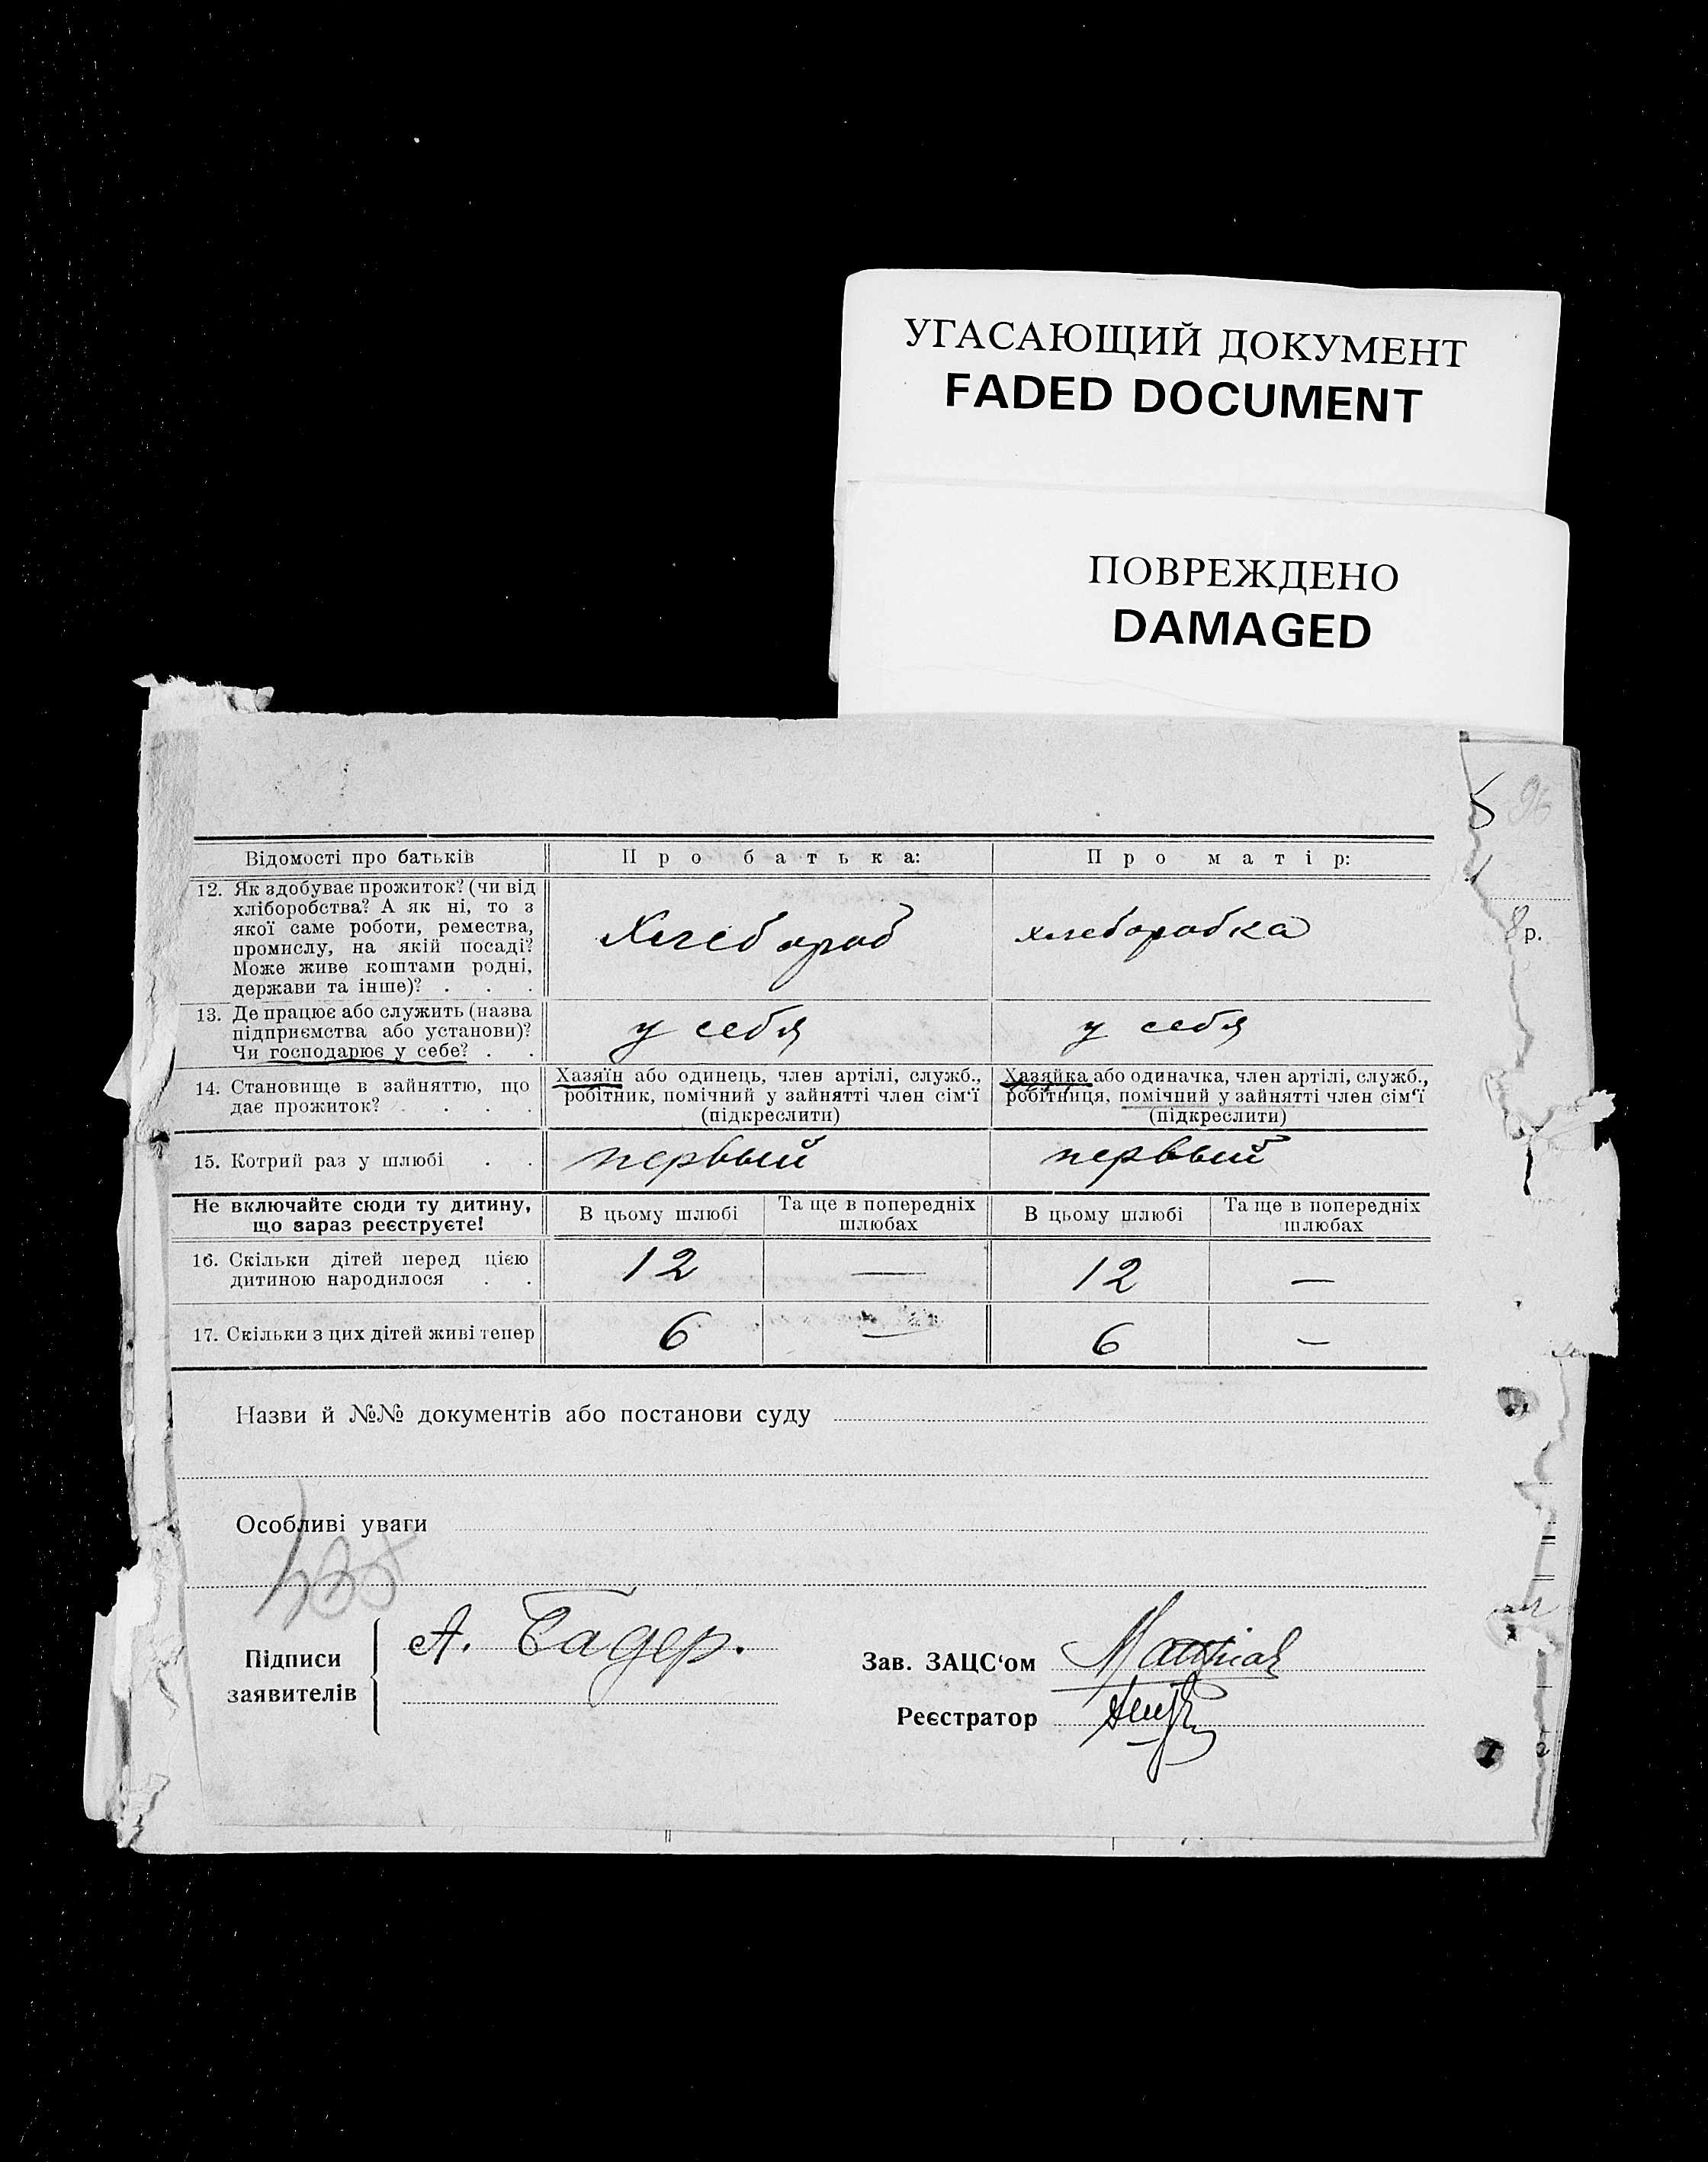 УГАСАЮЩИЙ ДОКУМЕНТ
FADED DOCUMENT
ПОВРЕЖДЕНО
DAMAGED
96
р.
Відомості про батьків
Про батька:
Про матір:
12. Як здобуває прожиток? (чи від
хліборобства? А як ні, то з
якої саме роботи, ремества,
промислу, на якій посаді?
Може живе коштами родні,
держави та інше)? . . .
Хлебороб
хлеборобка
13. Де працює або служить (назва
підприємства або установи)?
Чи господарює у себе? . .
у себя
у себя
14. Становище в зайняттю, що
дає прожиток? . . . .
Хазяїн або одинець, член артілі, служб.,
робітник, помічний у зайнятті член сім'ї
(підкреслити)
Хазяйка або одиначка, член артілі, служб.,
робітниця, помічний у зайнятті член сім'ї
(підкреслити)
15. Котрий раз у шлюбі . .
первый
первый
Не включайте сюди ту дитину,
що зараз реєструєте!
В цьому шлюбі
Та ще в попередніх
шлюбах
В цьому шлюбі
Та ще в попередніх
шлюбах
16. Скільки дітей перед цією
дитиною народилося . .
12
—
12
—
17. Скільки з цих дітей живі тепер
6
—
6
—
Назви й №№ документів або постанови суду
Особливі уваги
Підписи
заявителів
А. Бадер.
Зав. ЗАЦС‘ом
Реєстратор